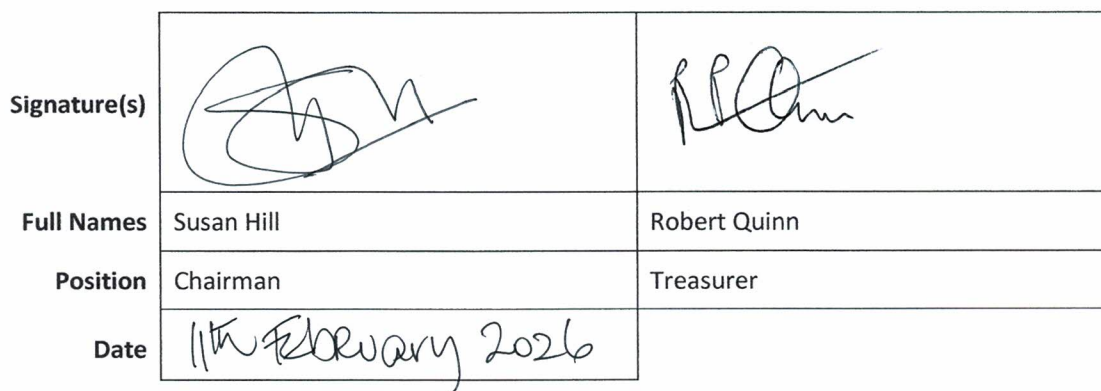 Signature(s) RPQuinn
Full Names Susan Hill Robert Quinn
Position Chairman Treasurer
Date 11th February 2026